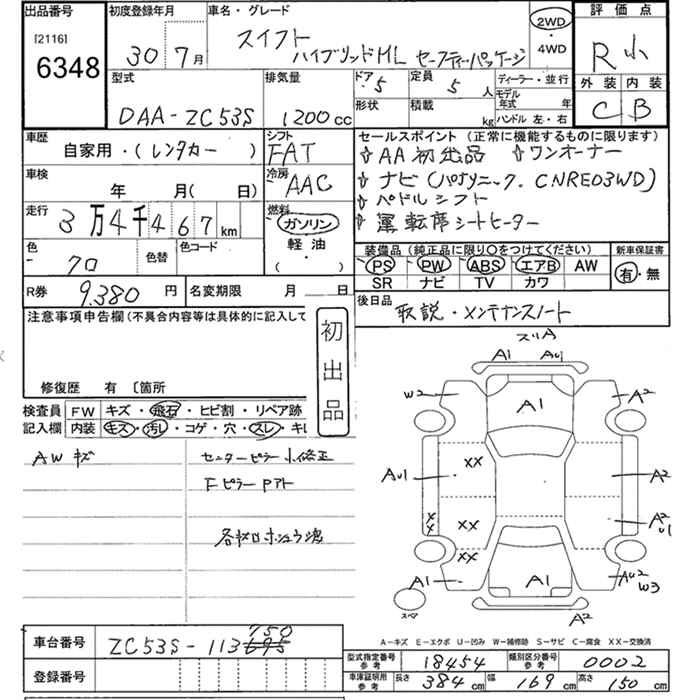 出品番号
[2116]
6348
初度登録年月
30年 7月
車名・グレード
スイフト
ハイブリッドML セーフティパッケージ
2WD
・
4WD
評価点
R小
外装 内装
C B
型式
DAA-ZC53S
排気量
1200cc
ドア
5
定員
5人
ディーラー・並行
形状
積載
kg
モデル年式 年
ハンドル 左・右
車歴
自家用・(レンタカー)
シフト
FAT
車検
年 月( 日)
冷房
AAC
走行
3万4千467km
燃料
ガソリン
軽油
( )
色
クロ
色替
色コード
R券
9,380円
名変期限 月 日
セールスポイント (正常に機能するものに限ります)
AA初出品 ワンオーナー
ナビ(パナソニック. CNRE03WD)
パドルシフト
運転席シートヒーター
装備品 (純正品に限り○をつけてください)
PS PW ABS エアB AW
SR ナビ TV カワ
新車保証書
有・無
後日品
取説・メンテナンスノート
注意事項申告欄(不具合内容等は具体的に記入して
修復歴 有 〔箇所
初出品
検査員記入欄
FW キズ・飛石・ヒビ割・リペア跡
内装 キズ・汚レ・コゲ・穴・スレ・キレ
AWキズ
センターピラー小修正
FピラーPアト
スリA
A1 AU1
W2 A1 A2
AU1 XX A2
XX XX A2 U1
XX
A1 A1 AU2 W3
スペア A2
A-キズ E-エクボ U-凹み W-補修跡 S-サビ C-腐食 XX-交換済
車台番号
ZC53S-113695
750
登録番号
型式指定番号 参考
18454
類別区分番号 参考
0002
車庫証明用 参考
長さ 384cm 幅 169cm 高さ 150cm